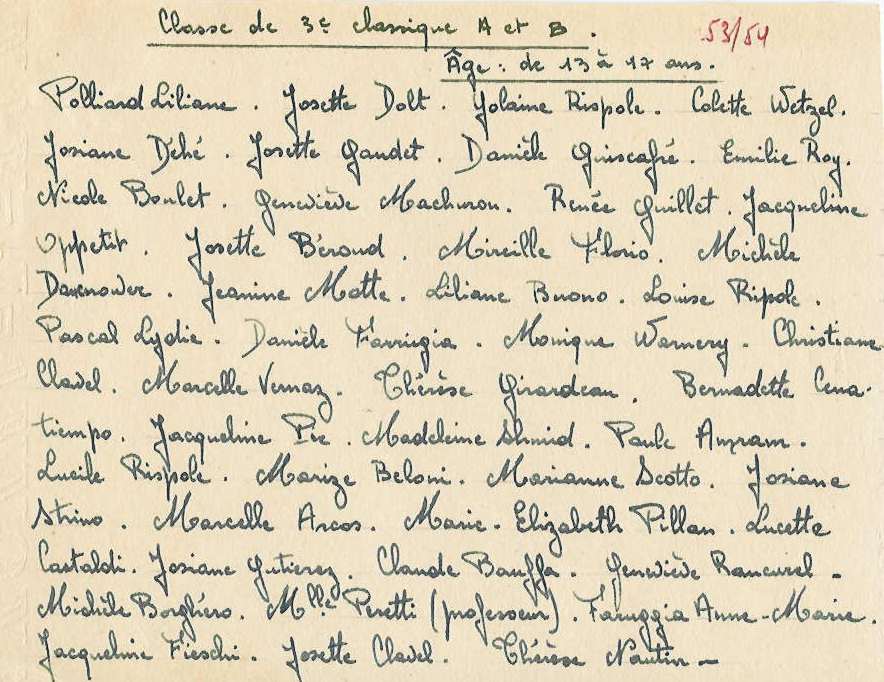 Classe de 3e classique A et B.
53/54
Âge : de 13 à 17 ans.
Polliard Liliane. Josette Dolt. Yolaine Rispole. Colette Wetzel.
Josiane Déhé. Josette Gaudet. Danièle Guiscafré. Emilie Roy.
Nicole Boulet. Geneviève Machuron. Renée Guillet. Jacqueline
Oppetit. Josette Béraud. Mireille Florio. Michèle
Jeanine Motte. Liliane Buono. Louise Ripole.
Pascal Lydie. Danièle Farrugia. Monique Warnery. Christiane
Clavel. Marcelle Vernaz. Thérèse Girardeau. Bernadette Cena-
tiempo. Jacqueline Pie. Madeleine Shmid. Paule Amram.
Lucile Rispole. Marize Beloni. Marianne Scotto. Josiane
Strino. Marcelle Arcos. Marie-Elizabeth Pillan. Lucette
Castaldi. Josiane Gutierez. Claude Bauffa. Geneviève Rancurel -
Michèle Borghéro. Mlle Peretti (professeur). Faruggia Anne-Marie.
Jacqueline Fieschi. Josette Clavel. Thérèse Nautin -